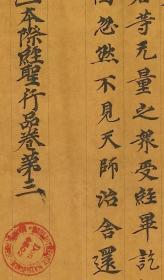 若等无量之衆受經畢訖
因忽然不見天師治舍還
本際經聖行品卷第三